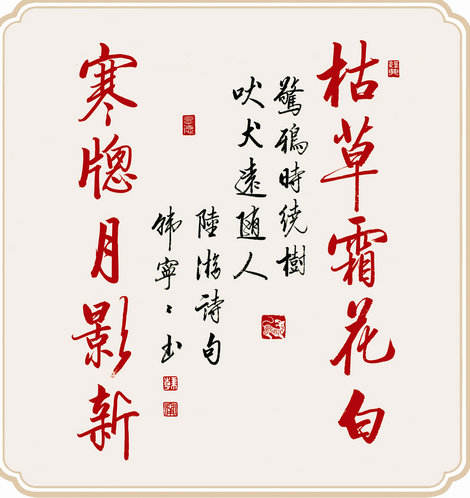 枯草霜花白
寒牕月影新
驚鴉時繞樹
吠犬遠隨人
陸游詩句
韩寧〻书